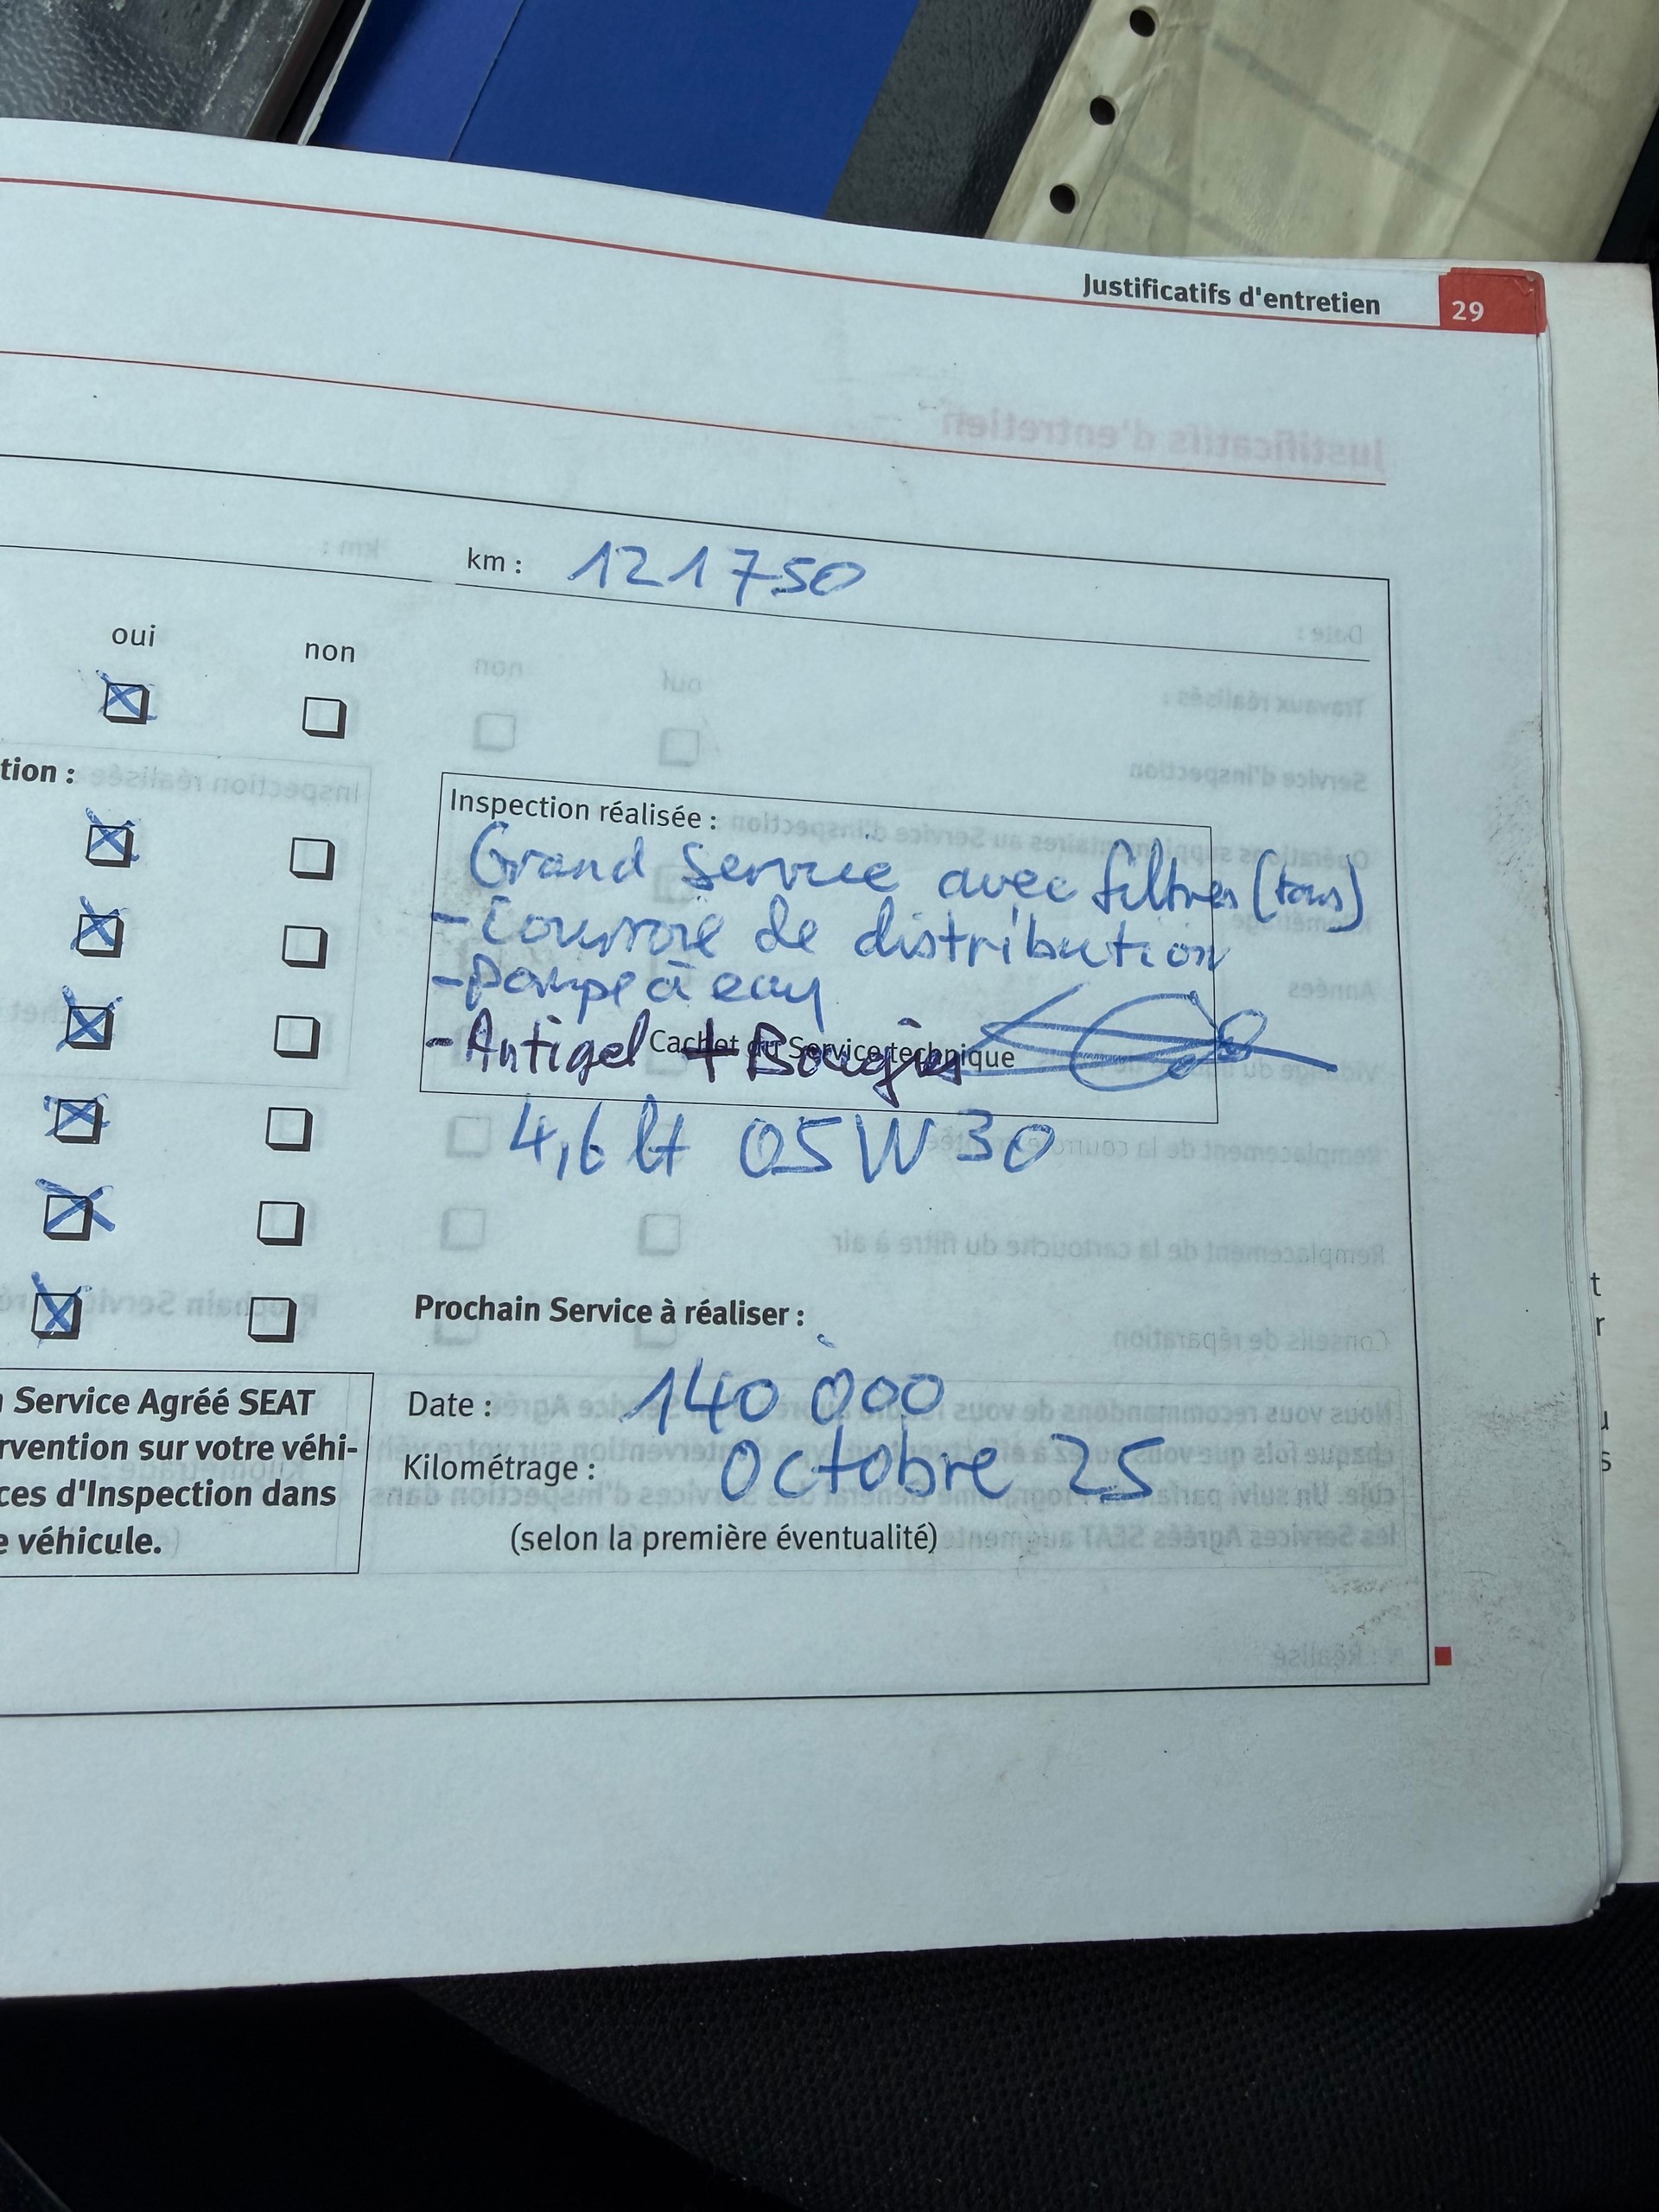 Justificatifs d'entretien 29
km : 121750
oui non
tion :
Inspection réalisée :
Grand Service avec filtres (tous)
- Courroie de distribution
- Pompe à eau
- Antigel + Bougies
Cachet du Service technique
4,6 lt 05W30
Prochain Service à réaliser :
Date : 140 000
Kilométrage : Octobre 25
(selon la première éventualité)
Service Agréé SEAT
rvention sur votre véhi-
ces d'Inspection dans
e véhicule.